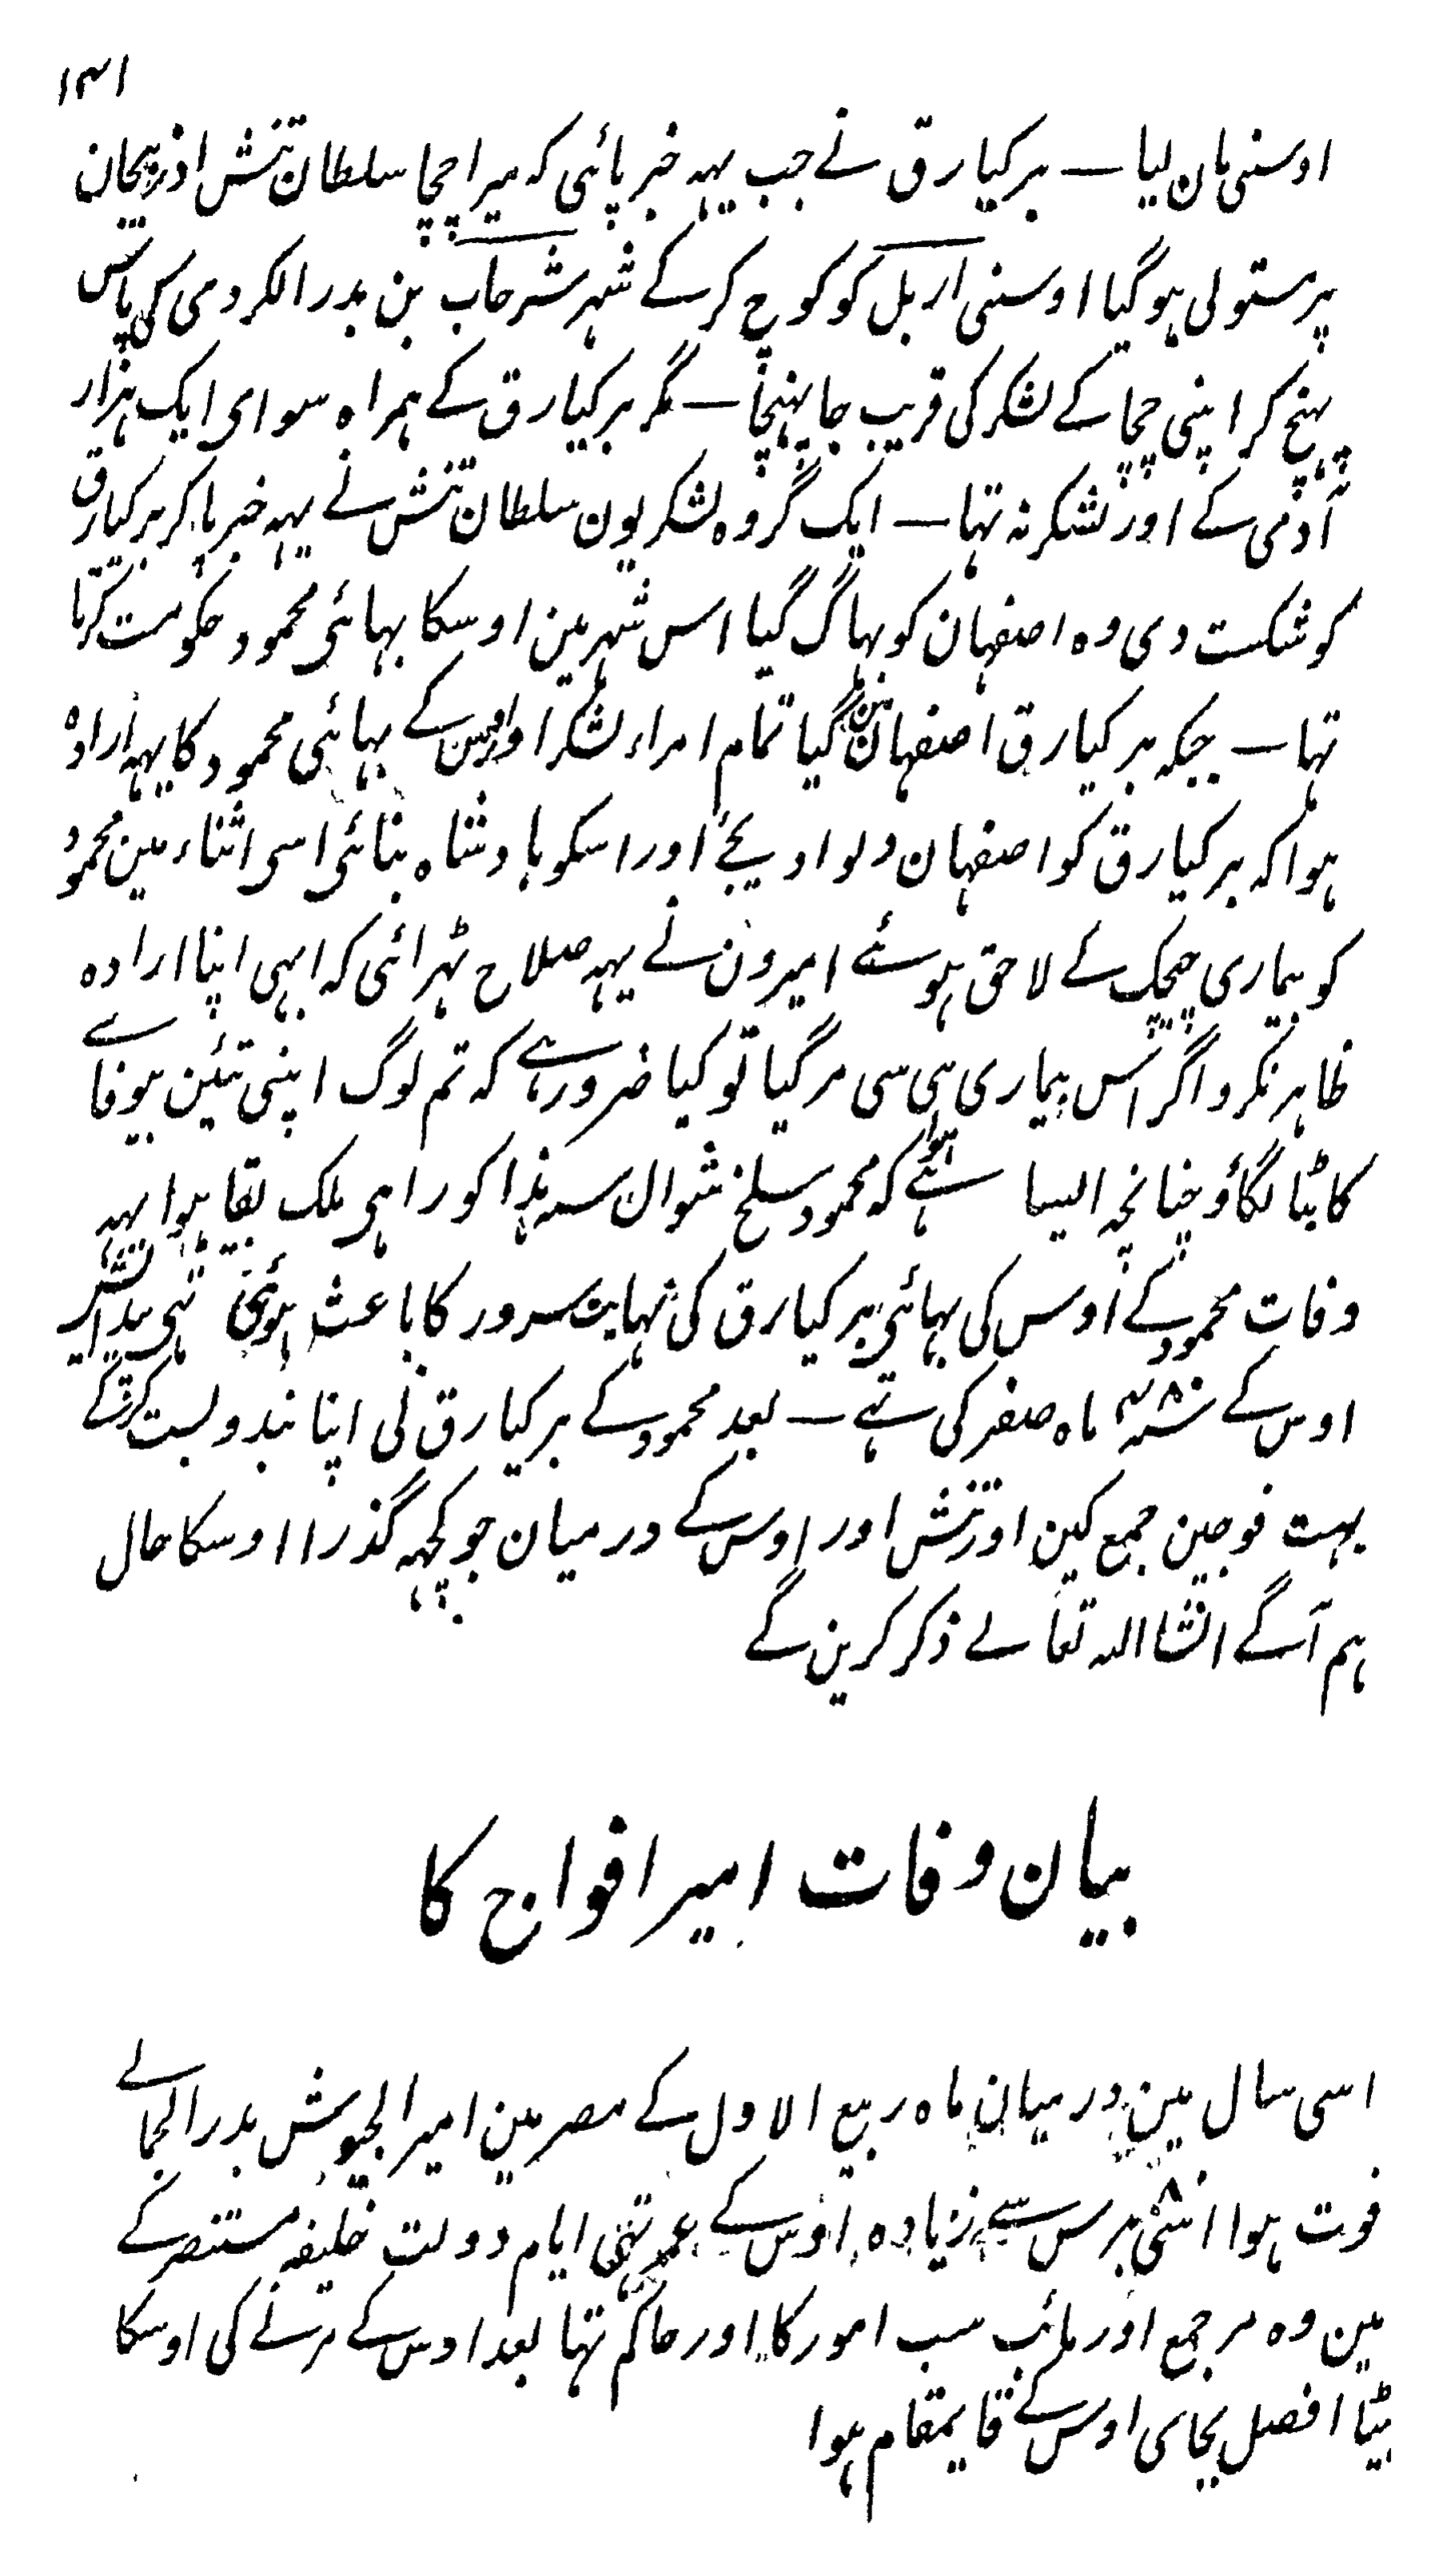 ۱۳۱
اوسنی مان لیا — برکیارق نے جب یہہ خبر پائی کہ میرا چچا سلطان تتش اذربیجان
پر مستولی ہو گیا اوسنی اربل کو کوچ کر کے شہر شرحاب بن بدر الکردمی کی پاس
پہنچ کر اپنی چچا کے لشکر کی قریب جا پہنچا — مگر برکیارق کے ہمراہ سوای ایک ہزار
آدمی کے اور لشکر نہ تہا — ایک گروہ لشکریون سلطان تتش نے یہہ خبر پا کر برکیارق
کو شکست دی وہ اصفہان کو بہاگ گیا اس شہر مین اوسکا بہائی محمود حکومت کرتا
تہا — جبکہ برکیارق اصفہان مین گیا تمام امراء لشکر اور اوس کے بہائی محمود کا یہہ ارادہ
ہوا کہ برکیارق کو اصفہان دلوا دیجے اور اسکو بادشاہ بنائی اسی اثناء مین محمود
کو بیماری چیچک کے لاحق ہوئے امیرون نے یہہ صلاح ٹہرائی کہ ابہی اپنا ارادہ
ظاہر نکرو اگر اس بیماری ہی سی مر گیا تو کیا ضرور ہے کہ تم لوگ اپنی تئین بیوفائے
کا بٹا لگاؤ چنانچہ ایسا ہوا ہے کہ محمود سلخ شوال سہ ہذا کو راہی ملک بقا ہوا یہہ
وفات محمود کے اوس کی بہائی برکیارق کی نہایت سرور کا باعث ہوئی تہی پیدائش
اوس کے سنہ ۴۸۰ ماہ صفر کی ہے — بعد محمود کے برکیارق نی اپنا بندوبست کر کے
بہت فوجین جمع کین اور تتش اور اوس کے درمیان جو کچہہ گذرا اوسکا حال
ہم آگے انشا اللہ تعالے ذکر کرین گے
بیان وفات امیر افواج کا
اسی سال مین درمیان ماہ ربیع الاول کے مصر مین امیر الجیوش بدر الجمالے
فوت ہوا اسّی برس سے زیادہ اوس کے عمر تہی ایام دولت خلیفہ مستنصر کے
مین وہ مرجع اور مائب سب امور کا اور حاکم تہا بعد اوس کے مرنے کی اوسکا
بیٹا افضل بجای اوس کے قایمقام ہوا